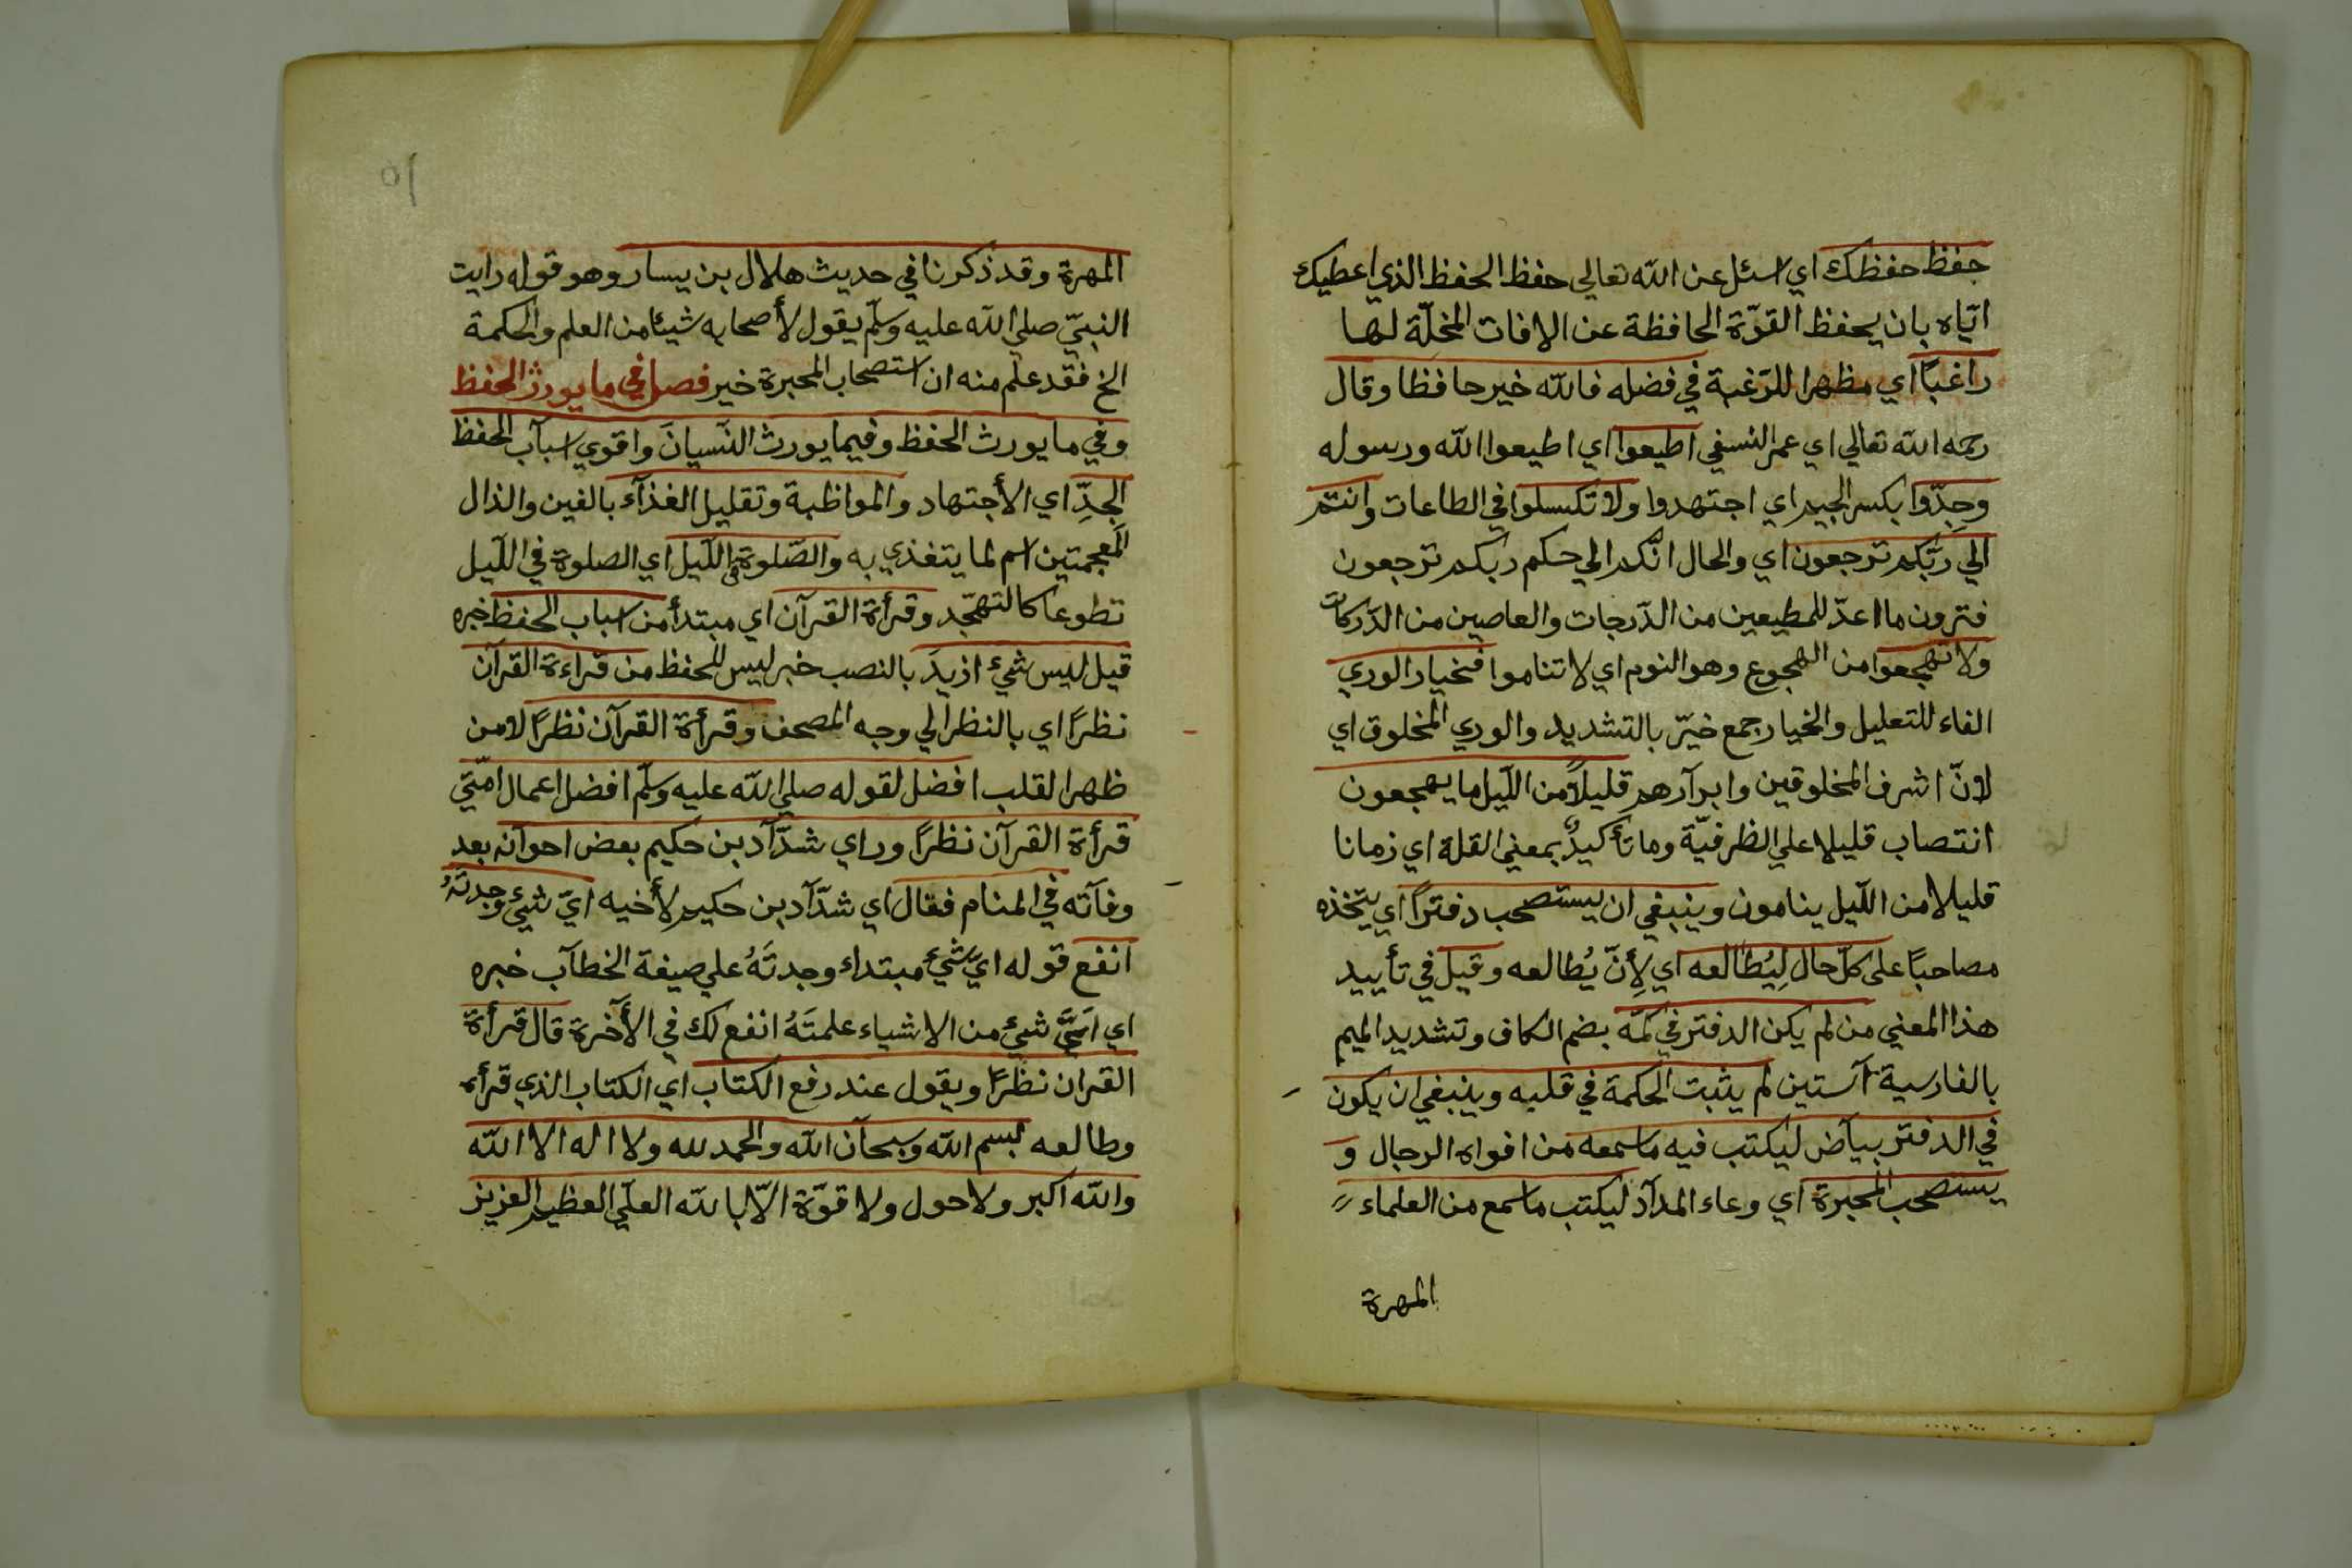 حفظ حفظك اي اسئل عن الله تعالي حفظ الحفظ الذي اعطيك
ايّاه بان يحفظ القوّة الحافظة عن الافات المخلّة لها
راغبًا اي مظهرا للرّغبة في فضله فالله خير حافظا وقال
رحمه الله تعالي اي عمر النسفي اطيعوا اي اطيعوا الله ورسوله
وجِدّوا بكسر الجيم اي اجتهدوا ولا تكسلوا في الطاعات وانتم
الي ربّكم ترجعون اي والحال انّكم الي حكم ربّكم ترجعون
فترون ما اعدّ للمطيعين من الدّرجات والعاصين من الدّركات
ولا تهجعوا من الهجوع وهو النوم اي لا تناموا فخيار الوري
الفاء للتعليل والخيار جمع خيّر بالتشديد والوري المخلوق اي
لانّ اشرف المخلوقين وابرآرهم قليلًا من اللّيل ما يهجعون
انتصاب قليلا علي الظرفيّة وما تأكيدٌ بمعني القلة اي زمانا
قليلا من اللّيل ينامون وينبغي ان يستصحب دفترًا اي يتّخذه
مصاحبًا على كلّ حال لِيُطالعه اي لِأنّ يُطالعه وقيل في تأييد
هذا المعني من لم يكن الدفتر في كمّه بضم الكاف وتشديد الميم
بالفارسية آستين لم يثبت الحكمة في قلبه وينبغي ان يكون
في الدفتر بياض ليكتب فيه ما سمعه من افواه الرجال و
يستصحب المحبرة اي وعاء المدآد ليكتب ما سمع من العلماء
المهرة
المهرة وقد ذكرنا في حديث هلال بن يسار وهو قوله رايت
النبيّ صلي الله عليه وسلّم يقول لأصحابه شيئا من العلم والحكمة
الخ فقد علم منه ان استصحاب المحبرة خير فصل في ما يورث الحفظ
وفي ما يورث الحفظ وفيما يورث النّسيانَ واقوي اسبآب الحفظ
الجِدّ اي الأجتهاد والمواظبة وتقليل الغذآء بالغين والذال
المعجمتين اسم لما يتغذي به والصّلوة في اللّيل اي الصلوة في اللّيل
تطوعا كالتهجّد وقرأة القرآن اي مبتدأ من اسباب الحفظ خبره
قيل ليس شيء ازيدَ بالنصب خبر ليس للحفظ من قراءة القرآن
نظرًا اي بالنظر الي وجه المصحف وقرأة القرآن نظرًا لا من
ظهر القلب افضل لقوله صلي الله عليه وسلّم افضل اعمال امّتي
قرأة القرآن نظرًا وراي شدّآد بن حكيم بعض اخوانه بعد
وفاته في المنام فقال اي شدّآد بن حكيم لِأخيه ايّ شيء وجدتَهُ
انفع قوله ايّ شيء مبتداء وجدتَهُ علي صيغة الخطآب خبره
اي ايّ شيء من الاشياء علمتَهُ انفع لك في الآخرة قال قرأة
القران نظرًا ويقول عند رفع الكتاب اي الكتاب الذي قرأه
وطالعه بسم الله وسبحآن الله والحمد لله ولا اله الا الله
والله اكبر ولا حول ولا قوّة الّا بالله العليّ العظيم العزيز